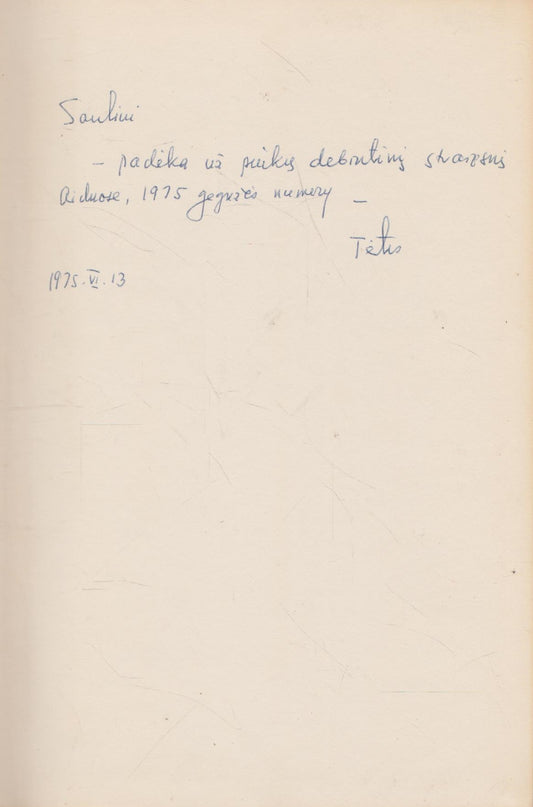 Sauliui
– padėka už puikų debiutinį straipsnį
Aiduose, 1975 gegužės numery –
Tėtis
1975.VI.13